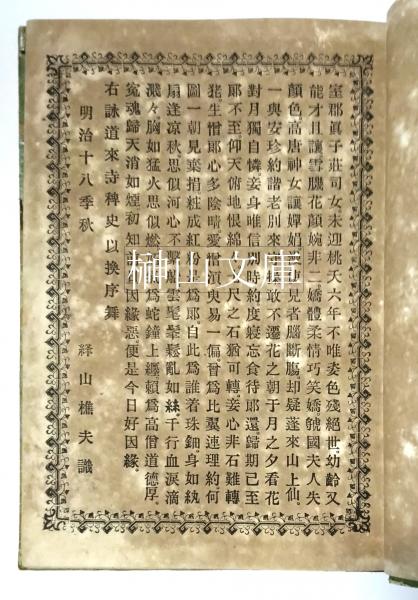 室郡眞子莊司女未迎桃夭六年不唯姿色殘絕世幼齡又
能才且讓雪膩花顏婉非二嬌體柔情巧笑嬌虢國夫人失
顏色高唐神女讓嬋娟 使見者腦斷膓却疑蓬來山上仙
一與安珍約諧老別來 敢不遷花之朝于月之夕看花
對月獨自憐妾身唯信 時約度寢忘食待郞還歸期已至
郞不至仰天俯地恨綿 尺之石猶可轉妾心非石難轉
狌生憎郞心多陰晴愛憎 臾易一偏昝爲比翼連理約何
圖一朝見棄捐粧成紅 爲郞自此爲誰着珠鈿身如紈
扇逢凉秋思似河心不繫 雲髦鬆亂如絲千行血淚滴
濺々胸如猛火思似燃 爲蛇鐘上纏賴爲高僧道德厚
寃魂歸天消如煙初知 因緣惡便是今日好因緣
右詠道來寺稗史以換序舞
明治十八季秋
繹山樵夫識
榊山文庫